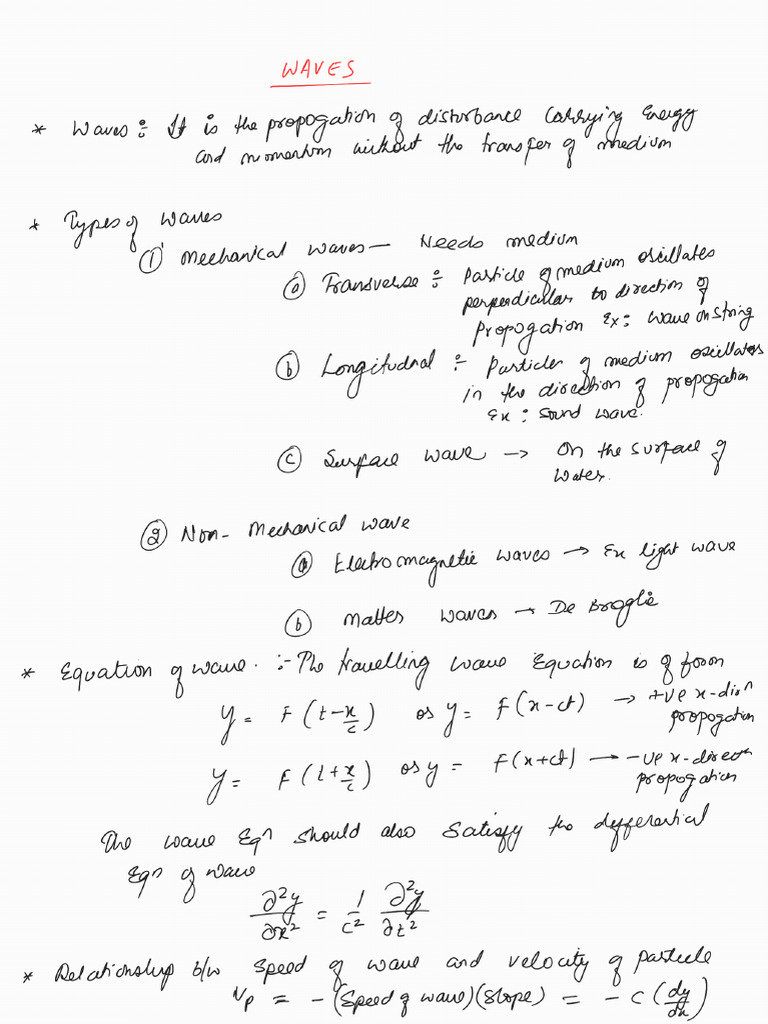 WAVES
* Waves ÷ It is the propogation of disturbance carrying Energy
and momentum without the transfer of medium
* Types of Waves
① Mechanical waves — Needs medium
ⓐ Transverse ÷ Particle of medium oscillates
perpendicular to direction of
propogation Ex: Wave on string
ⓑ Longitudnal ÷ Particles of medium oscillates
in the direction of propogation
Ex: Sound wave.
ⓒ Surface wave → On the surface of
water.
② Non-Mechanical wave
ⓐ Electromagnetic waves → Ex light wave
ⓑ Matter waves → De Broglie
* Equation of wave :- The travelling wave Equation is of form
y = F(t - x/c) or y = F(x - ct) → +ve x-dirⁿ
propogation
y = F(t + x/c) or y = F(x + ct) → -ve x-direcn
propogation
The wave Eqⁿ should also satisfy the differential
Eqⁿ of wave
∂²y/∂x² = 1/c² ∂²y/∂t²
* Relationship b/w speed of wave and velocity of particle
Vp = -(Speed of wave)(slope) = -c(dy/dx)